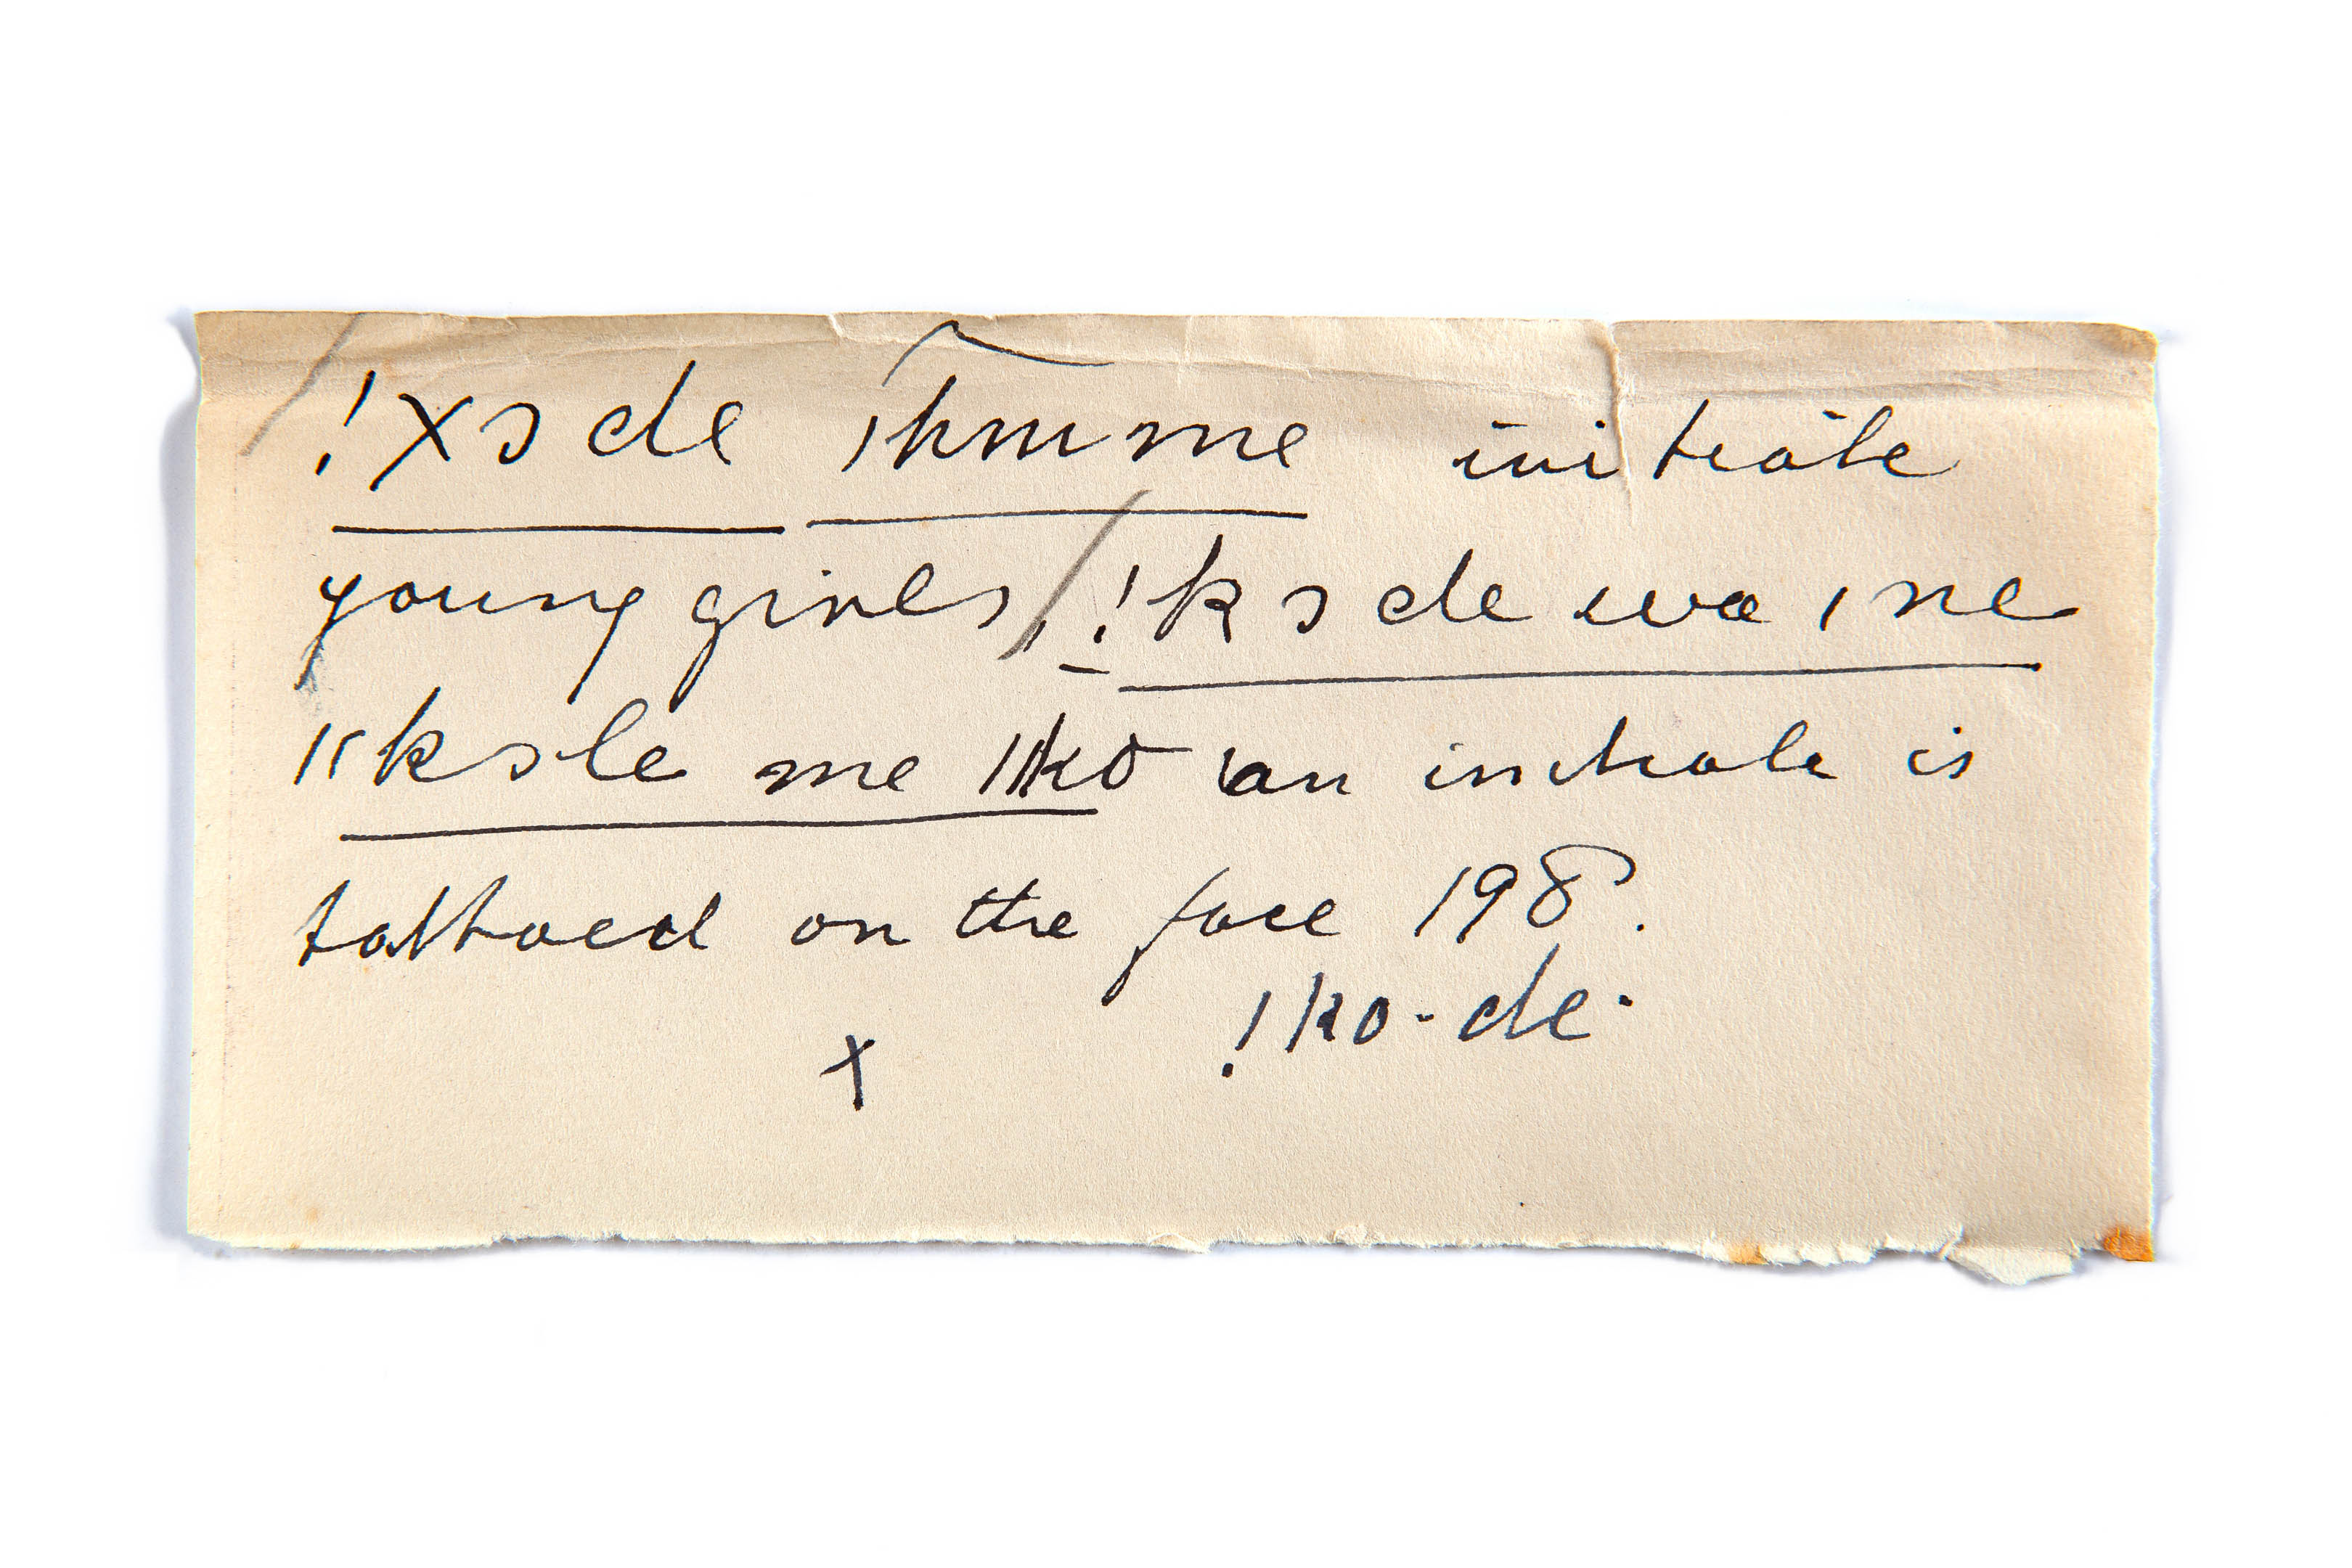 !xɔde ꞁhmme initiate
young girls/ !kɔde wa ꞁne
ǁkɔle me ǁko an initiate is
tattooed on the face 198.
!ko-de.
x